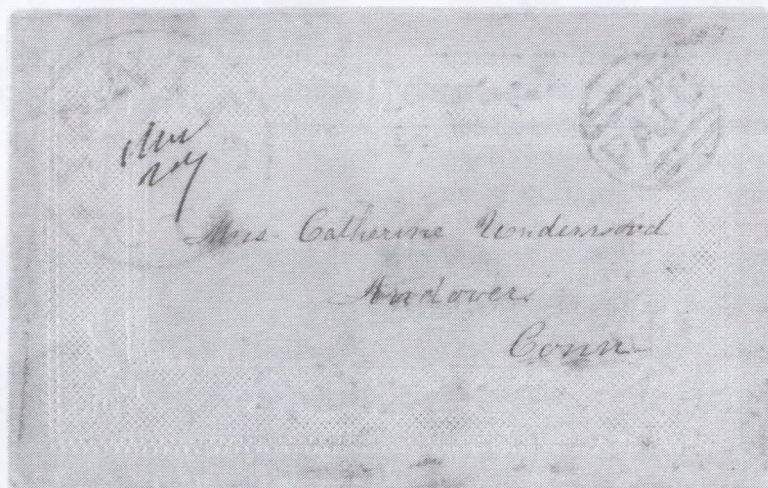 PAID
Mrs. Catherine Underwood
Andover
Conn